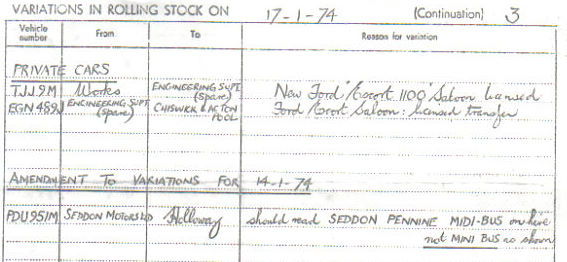 VARIATIONS IN ROLLING STOCK ON 17-1-74 (Continuation) 3
Vehicle number From To Reason for variation
PRIVATE CARS
TJJ 9M Works ENGINEERING SUPT (Spare) New Ford "Escort 1100" Saloon licensed
EGN 489J ENGINEERING SUPT (Spare) CHISWICK & ACTON POOL Ford Escort Saloon: licensed transfer
AMENDMENT TO VARIATIONS FOR 14-1-74
PDU 951M SEDDON MOTORS LTD Holloway should read SEDDON PENNINE MIDI-BUS on hire
not MINI BUS as shown